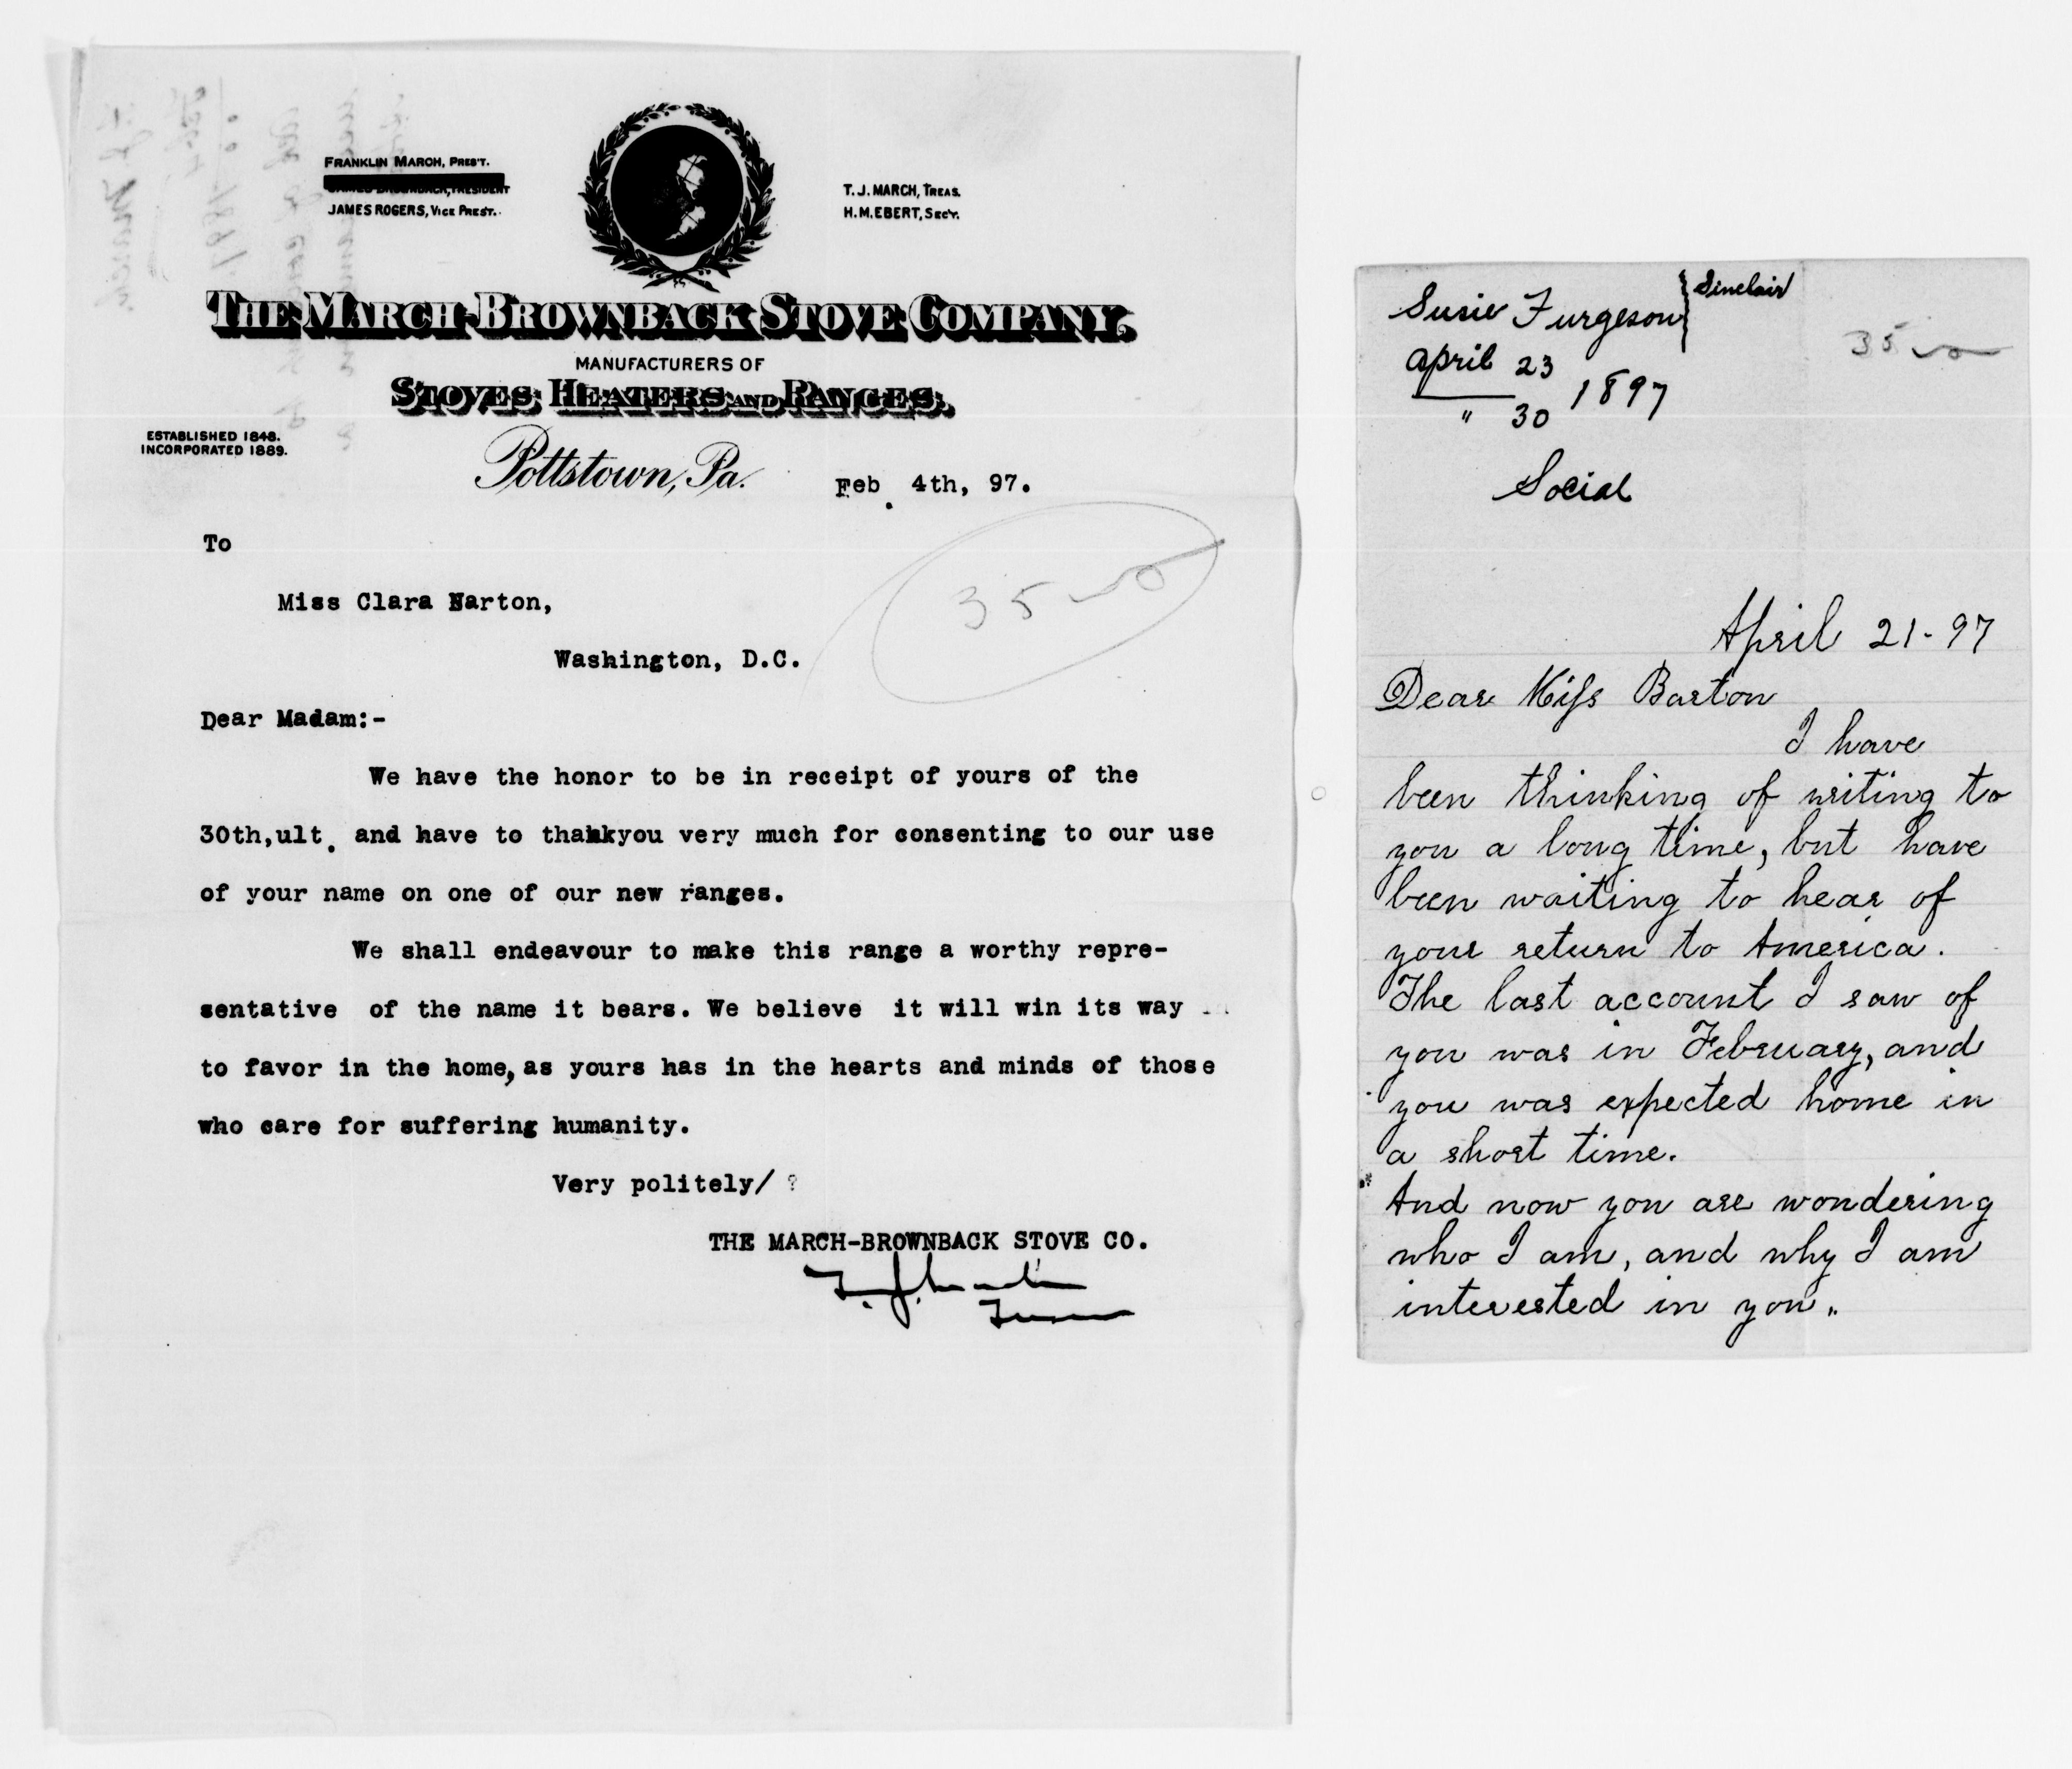 FRANKLIN MARCH, PRES'T.
JAMES BROWNBACK, PRESIDENT
JAMES ROGERS, VICE PREST.
T. J. MARCH, TREAS.
H. M. EBERT, SEC'Y.
THE MARCH-BROWNBACK STOVE COMPANY.
MANUFACTURERS OF
STOVES, HEATERS AND RANGES.
ESTABLISHED 1848.
INCORPORATED 1889.
Pottstown, Pa. Feb. 4th, 97.
35
To
Miss Clara Narton,
Washington, D.C.
Dear Madam:-
We have the honor to be in receipt of yours of the
30th,ult. and have to thankyou very much for consenting to our use
of your name on one of our new ranges.
We shall endeavour to make this range a worthy repre-
sentative of the name it bears. We believe it will win its way
to favor in the home, as yours has in the hearts and minds of those
who care for suffering humanity.
Very politely/ ?
THE MARCH-BROWNBACK STOVE CO.
T. J. March
Treas
Susie Furgeson } Sinclair
April 23
" 30 1897
35
Social
April 21-97
Dear Miss Barton
I have
been thinking of writing to
you a long time, but have
been waiting to hear of
your return to America.
The last account I saw of
you was in February, and
you was expected home in
a short time.
And now you are wondering
who I am, and why I am
interested in you..